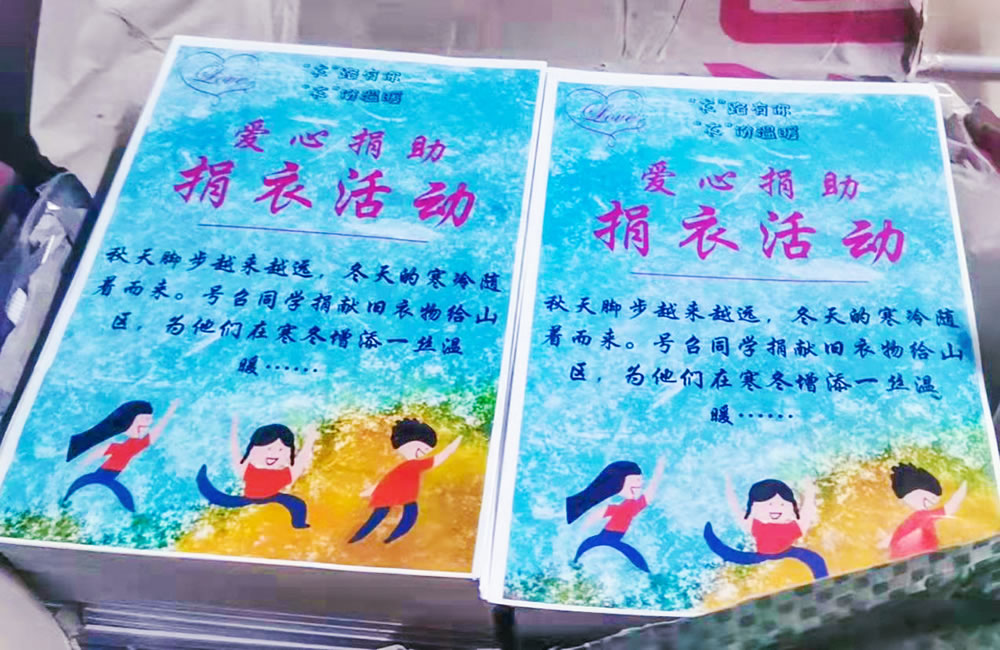 Love
"衣"路有你
"衣"份温暖
爱心捐助
捐衣活动
秋天脚步越来越远，冬天的寒冷随
着而来。号召同学捐献旧衣物给山
区，为他们在寒冬增添一丝温
暖······
Love
"衣"路有你
"衣"份温暖
爱心捐助
捐衣活动
秋天脚步越来越远，冬天的寒冷随
着而来。号召同学捐献旧衣物给山
区，为他们在寒冬增添一丝温
暖······